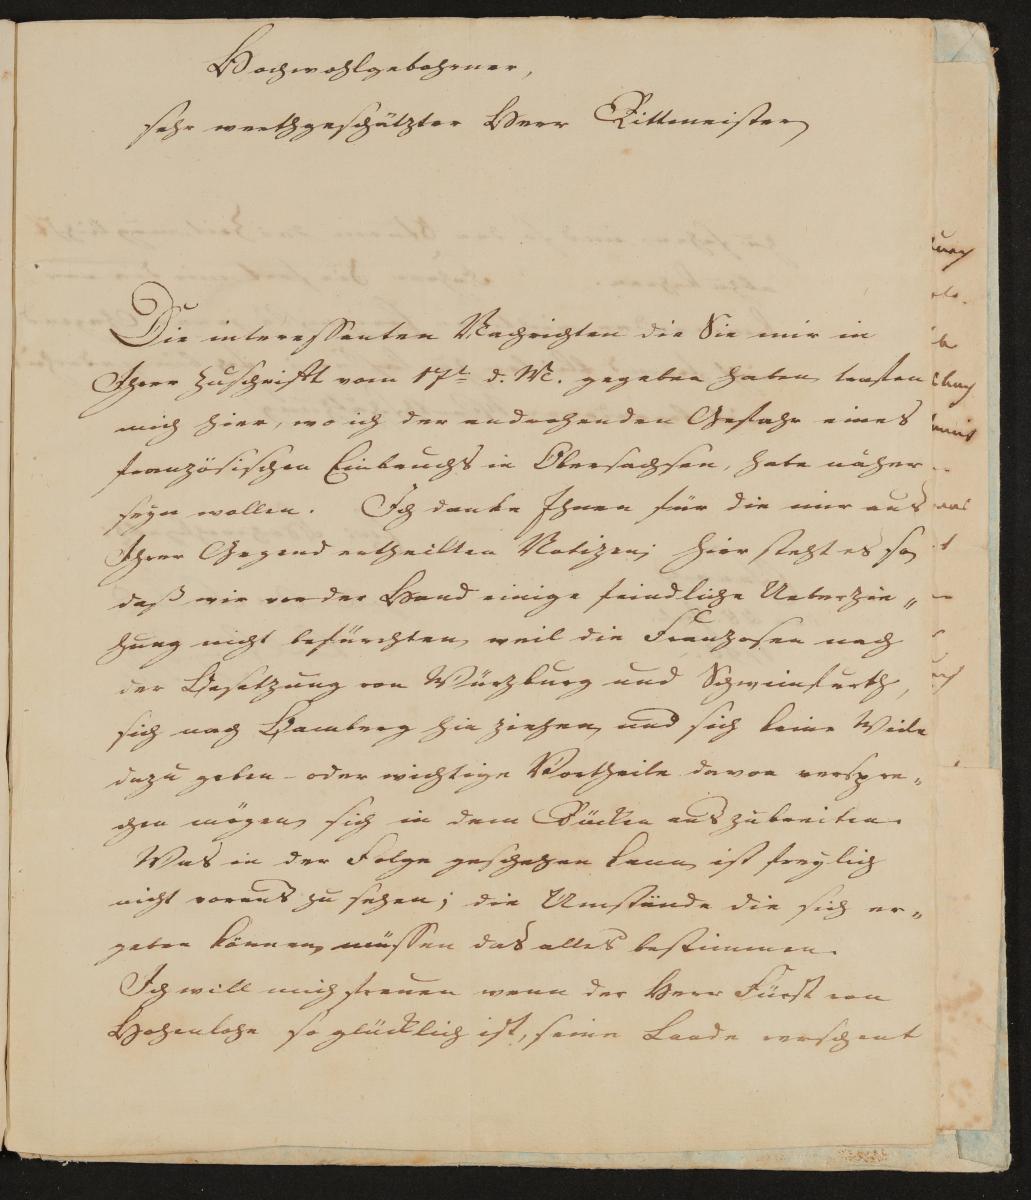 Hochwohlgebohrner,
sehr werthgeschätzter Herr Rittmeister
Die interessanten Nachrichten die Sie mir in
Ihrer Zuschrifft vom 17t d. M. gegeben haben, trafen
mich hier, wo ich der androhenden Gefahr eines
französischen Einbruchs in Obersachsen, habe näher
seyn wollen. Ich danke Ihnen für die mir aus
Ihrer Gegend ertheilten Notizen; hier steht es so
daß wir vor der Hand einige feindliche Ueberzie„
hung nicht befürchten, weil die Franzosen nach
der Besetzung von Würzburg und Schweinfurth,
sich nach Bamberg hin ziehen, und sich keine Weile
dazu geben - oder wichtige Vortheile davon verspre„
chen mögen, sich in dem Rücken auszubreiten.
Was in der Folge geschehen kann, ist freylich
nicht voraus zu sehen; die Umstände die sich er„
geben können, müssen das alles bestimmen.
Ich will mich freuen wenn der Herr Fürst von
Hohenlohe so glücklich ist, seine Lande verschont